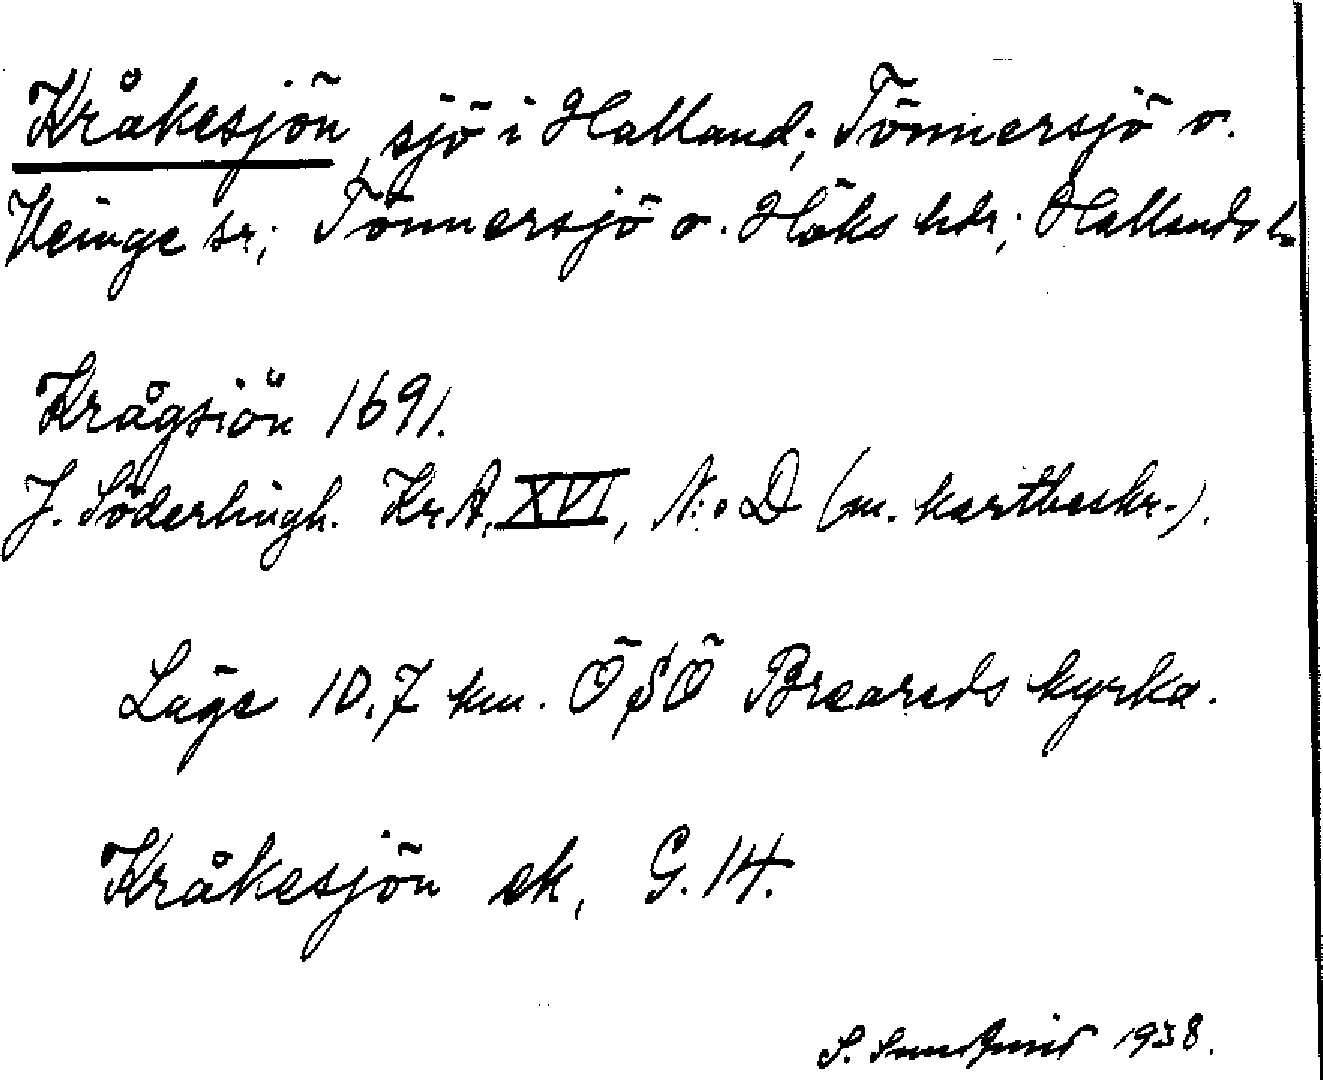 Kråkesjön, sjö i Halland; Tönnersjö o.
Veinge sr; Tönnersjö o. Höks hdr; Hallands l.
Krågsiön 1691.
J. Söderlingh. Kr.A. XVI, N:o D (m. kartbeskr.).
Läge 10,7 km. ÖSÖ Breareds kyrka.
Kråkesjön ek, G. 14.
S. Sundqvist 1938.